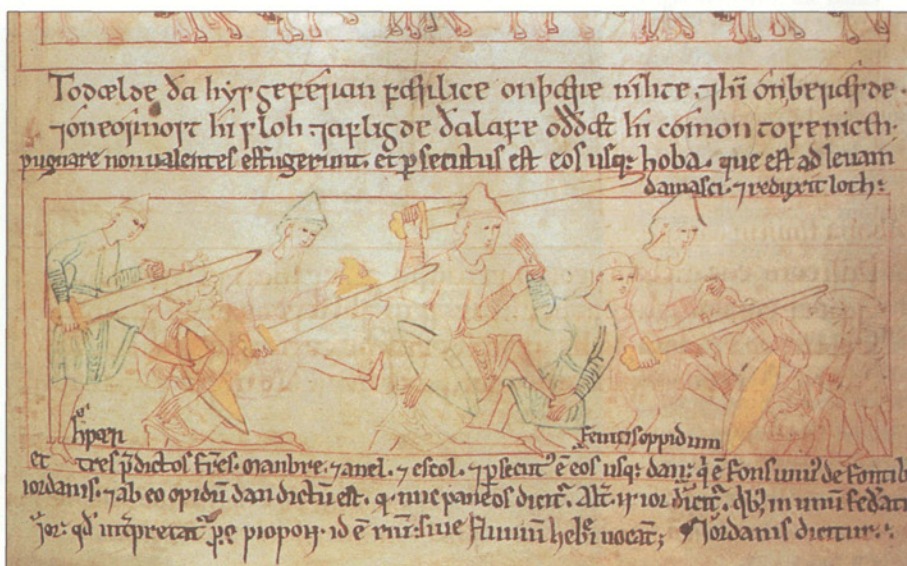 Todælde ða hys geferan onþære nihte. 7 him
7 on eornost hi sloh 7 afligde ða lafe oððæt hi comon to
pugnare non ualentes effugerunt. et psecutus est eos usq; hoba. que est ad leuam
damasci. 7 reduxit loth:
fenicis oppidum
et tres p̄dictos fr̄es. manbre. 7 anel. 7 escol. 7 psecut᾽ ē eos usq; dan: q̄ ē fons unus᾽ de fontib
iordanis. 7 ab eo opidū dan dictū est. q. nūc paneos dicit᾽. Alt. ior dicit᾽. qb; in unū
ior: qd᾽ int̄pretat᾽ id ē riuū siue fluuiū hebr̄i uocāt; Iordanis dicitur: